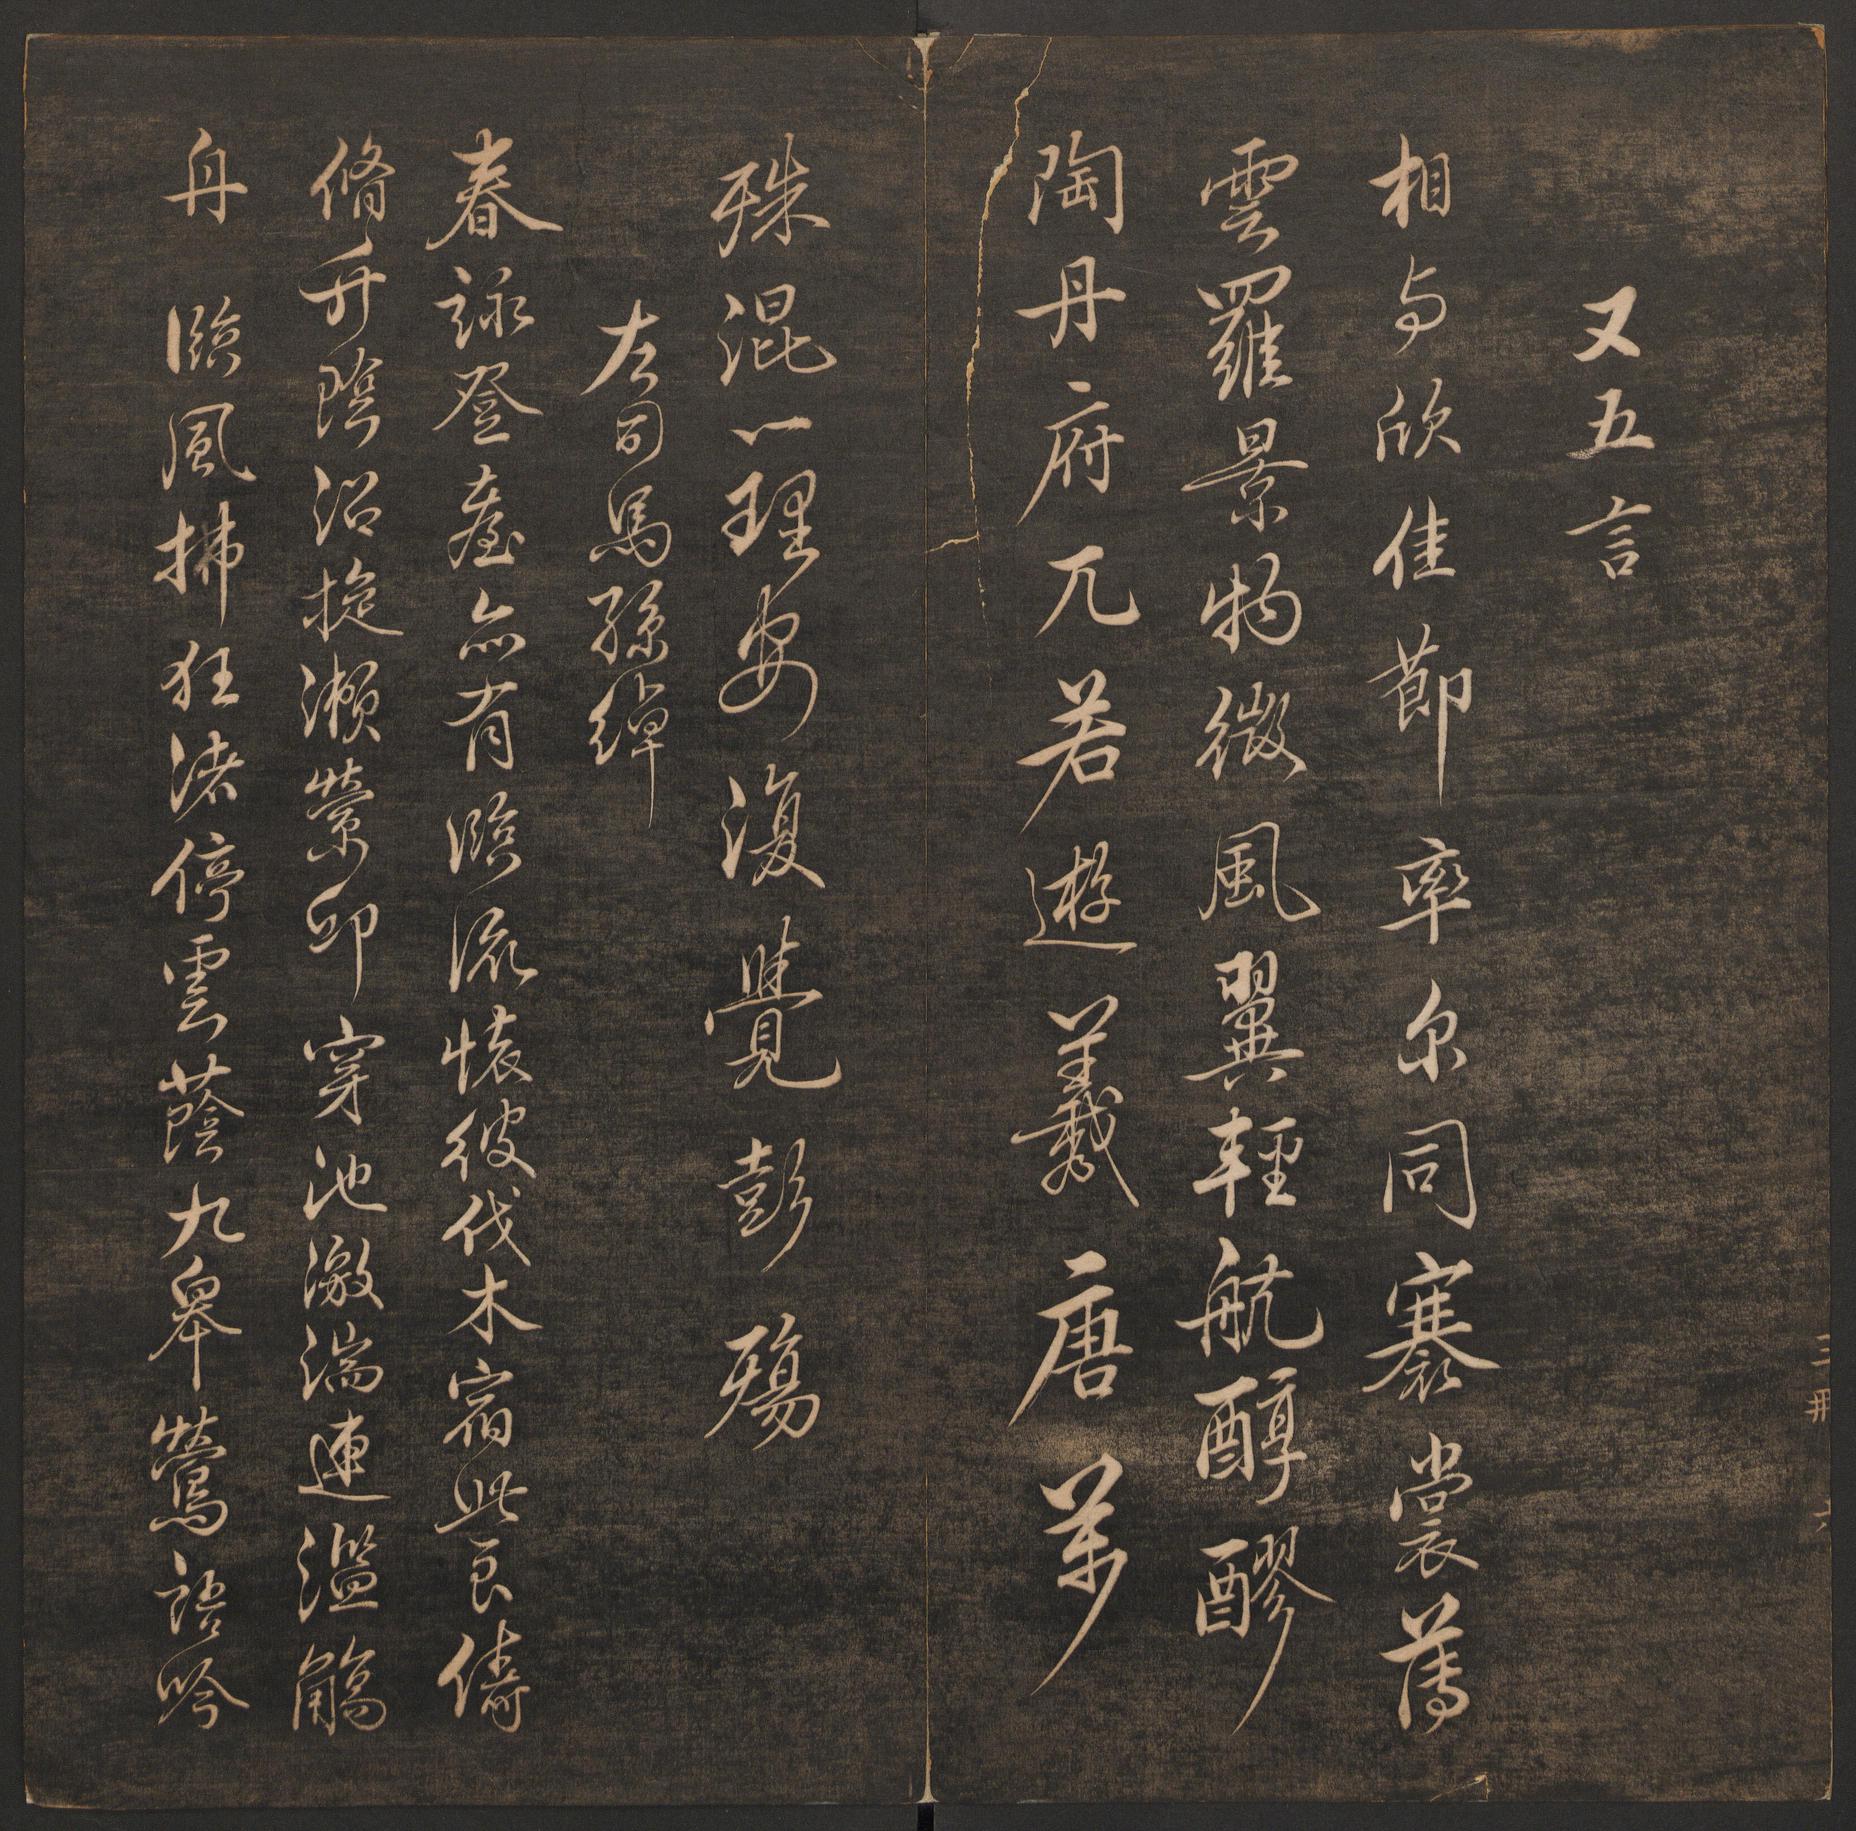 又五言
相与欣佳節率尔同褰裳薄
雲羅景物微風翼輕航醇醪
陶丹府兀若遊羲唐萬
殊混一理安復覺彭殤
左司馬孫綽
春詠登臺亦有臨流懷彼伐木宿此良儔
脩竹蔭沼旋瀨縈邱穿池激湍連濫觴
舟 臨風拂狂渚停雲蔭九皋鶯語吟
三冊